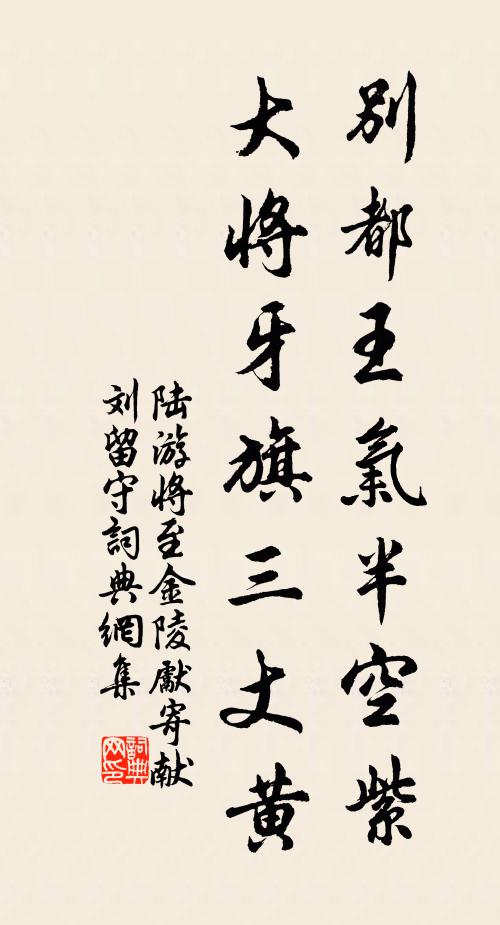 別都王氣半空紫
大將牙旗三丈黃
陆游將至金陵獻寄献
刘留守詞典網集
詞典网印